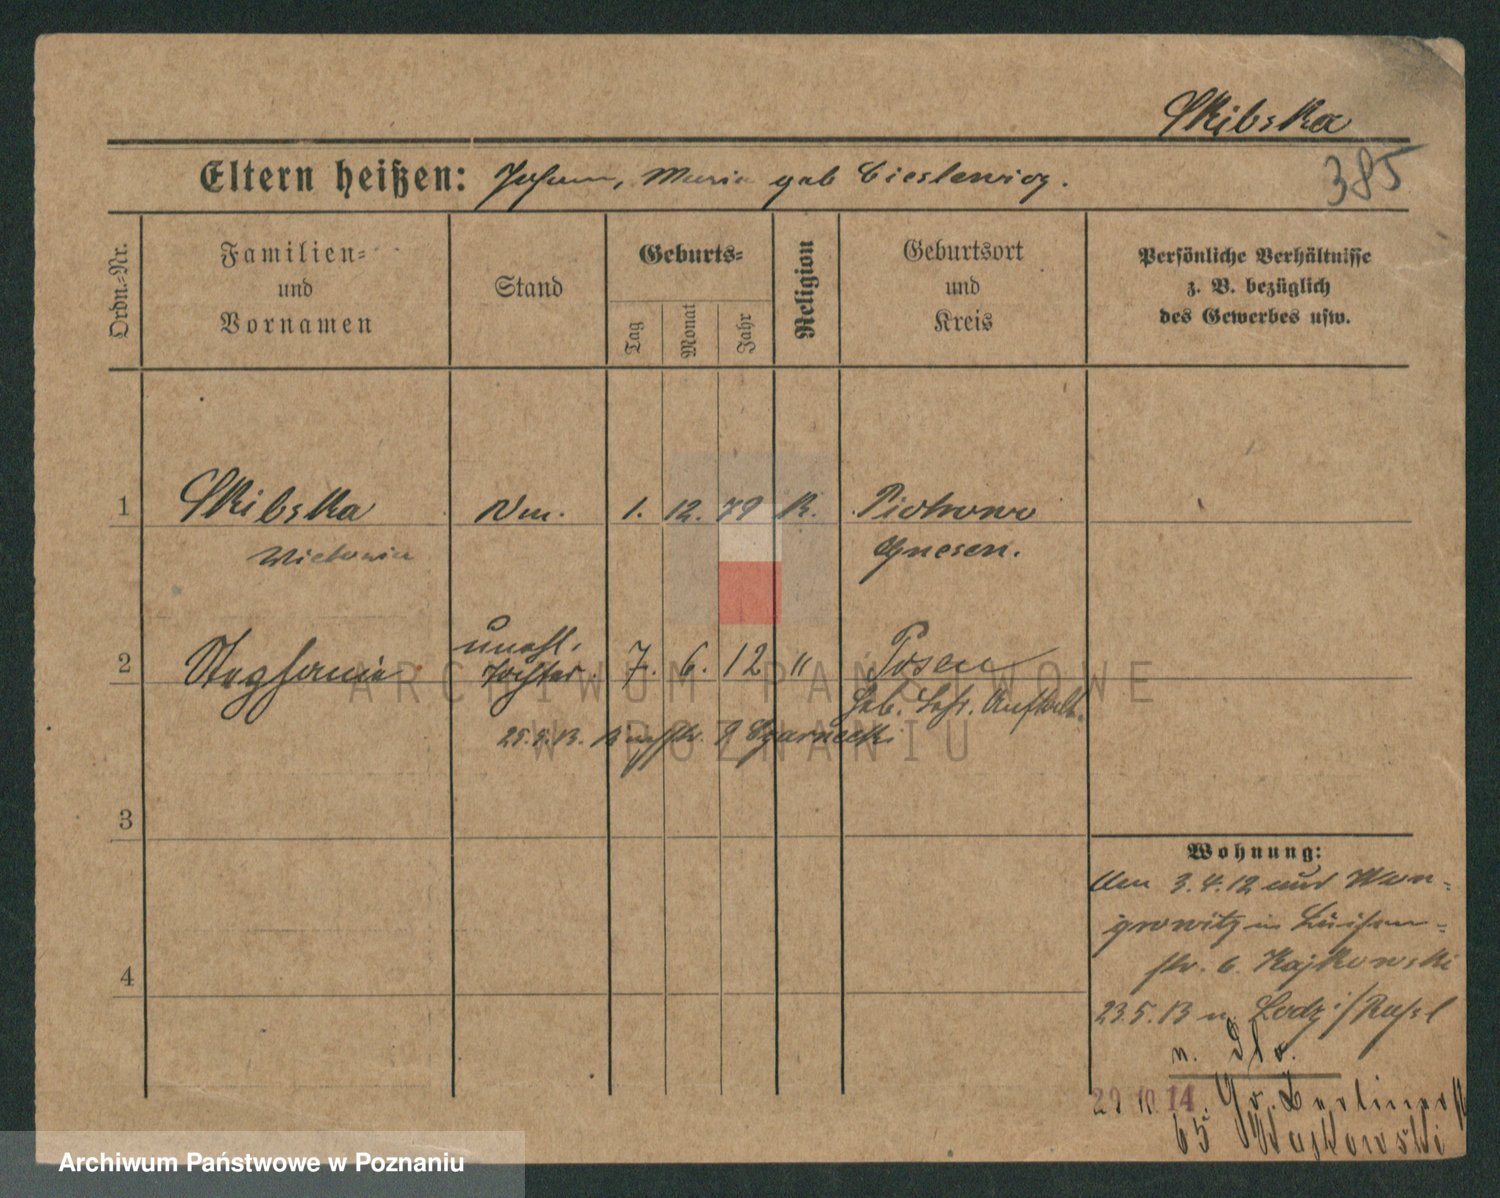 Skibska
385
Eltern heißen: Johann, Maria geb Cieslewicz.
Ordn.-Nr.
Familien-
und
Vornamen
Stand
Geburts-
Tag
Monat
Jahr
Religion
Geburtsort
und
Kreis
Persönliche Verhältnisse
z. B. bezüglich
des Gewerbes usw.
1 Skibska 1. 12. 79 K. Piotrowo
Wictoria Gnesen.
unehl.
2 Stephanie Tochter. 7. 6. 12 " Posen
Geb. Aufhalt.
23.5.13. 9 Czarnecki
3
Wohnung:
3.4.12 aus Won-
growitz in Luisen-
str. 6 Kajkowski
4
23.5.13 n. Lodz i/Russl
n.
29 10 14. Gr. Berlinerst
65 Wajkowski
ARCHIWUM PAŃSTWOWE
W POZNANIU
Archiwum Państwowe w Poznaniu